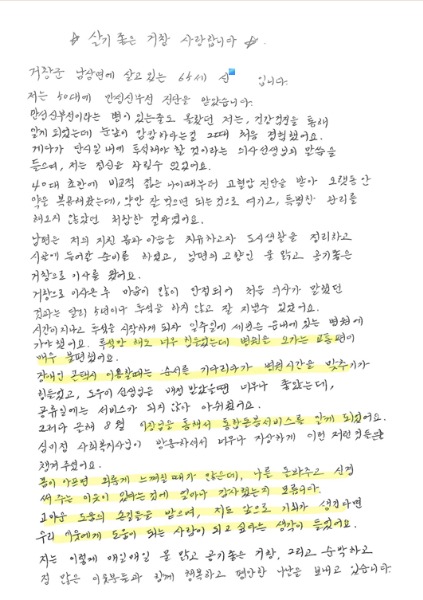 ☆ 살기 좋은 거창 사랑합니다 ☆.
거창군 남상면에 살고 있는 65세 신 입니다.
저는 50대에 만성신부전 진단을 받았습니다.
만성신부전이라는 병이 있는줄도 몰랐던 저는, 건강검진을 통해
알게 되었는데 눈앞이 캄캄하다는걸 그때 처음 경험했어요.
게다가 당시일 내에 투석해야 할 것이라는 의사선생님의 말씀을
들으며, 저는 정신을 차릴수 없었어요.
40대 초반에 비교적 젊은 나이때부터 고혈압 진단을 받아 오랫동안
약을 복용해왔는데, 약만 잘 먹으면 되는것으로 여기고, 특별한 관리를
해오지 않았던 처참한 결과였어요.
남편은 저의 지친 몸과 마음을 치유하고자 도시생활을 정리하고
시골에 들어갈 준비를 하였고, 남편의 고향인 물 맑고 공기좋은
거창으로 이사를 왔어요.
거창으로 이사온 후 마음이 많이 안정되어 처음 의사가 말했던
것과는 달리 5년이나 투석을 하지 않고 잘 지낼수 있었어요.
시간이 지나고 투석을 시작하게 되자 일주일에 세번은 읍내에 있는 병원에
가야 했어요. 투석만 해도 너무 힘들었는데 병원을 오가는 교통편이
매우 불편했어요.
장애인 콜택시 이용할때는 순서를 기다리다가 병원시간을 맞추기가
힘들었고, 도우미 선생님을 배정 받았을땐 너무나 좋았는데,
공휴일에는 서비스가 되지 않아 아쉬웠어요.
그러다 올해 8월 이장님을 통해서 통합돌봄서비스를 알게 되었어요.
심이정 사회복지사님이 방문하셔서 너무나 자상하게 이런 저런것들을
챙겨주었어요.
몸이 아프면 외롭게 느껴질때가 많은데, 나를 돌봐주고 신경
써 주는 이웃이 있다는것에 얼마나 감사했는지 모릅니다.
고마운 도움의 손길들을 받으며, 저도 앞으로 기회가 생긴다면
우리 이웃에게 도움이 되는 사람이 되고 싶다는 생각이 들었어요.
저는 이렇게 매일매일 물 맑고 공기좋은 거창, 그리고 순박하고
정 많은 이웃분들과 함께 행복하고 편안한 나날을 보내고 있습니다.